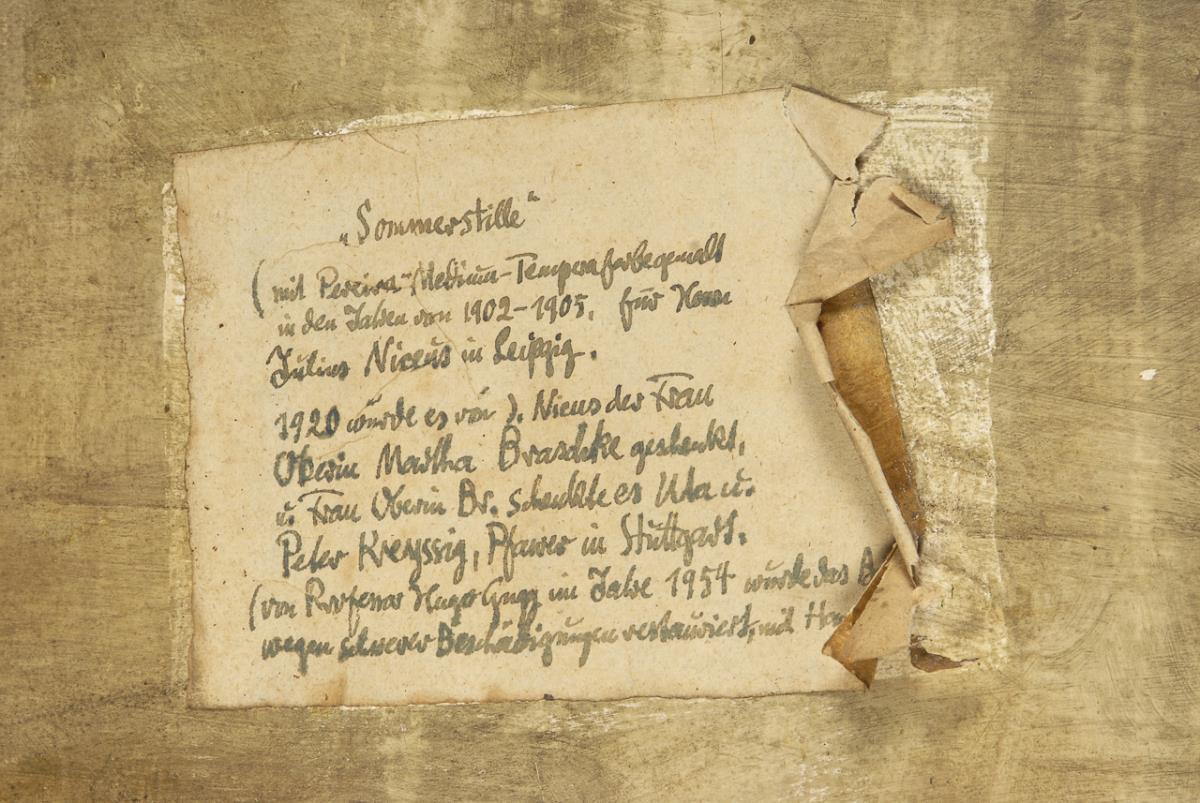 „Sommerstille“
(mit Pereira-Medium-Temperafarbe gemalt
in den Jahren von 1902-1905. für Herrn
Julius Niceus in Leipzig.
1920 wurde es von J. Niceus der Frau
Oberin Martha Braschke geschenkt,
u. Frau Oberin Br. schenkte es Uta u.
Peter Kreyssig, Pfarrer in Stuttgart.
(von Professor Hugo Gugg im Jahre 1954 wurde das B
wegen schwerer Beschädigungen restauriert, mit Ha